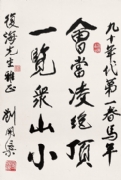 九十年代第一春馬年
會當凌绝頂
一覽衆山小
海先生雅正
劉開渠